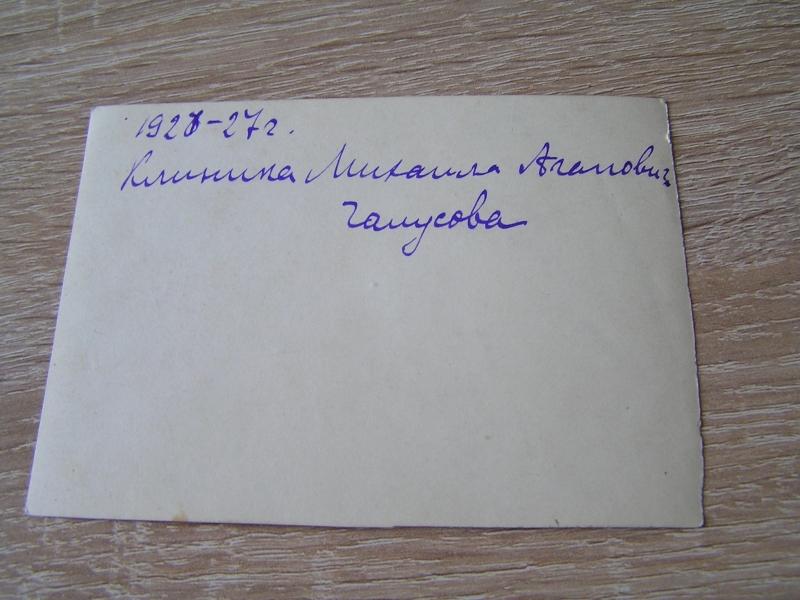 1926-27г.
Клиника Михаила Агапович
Чаусова